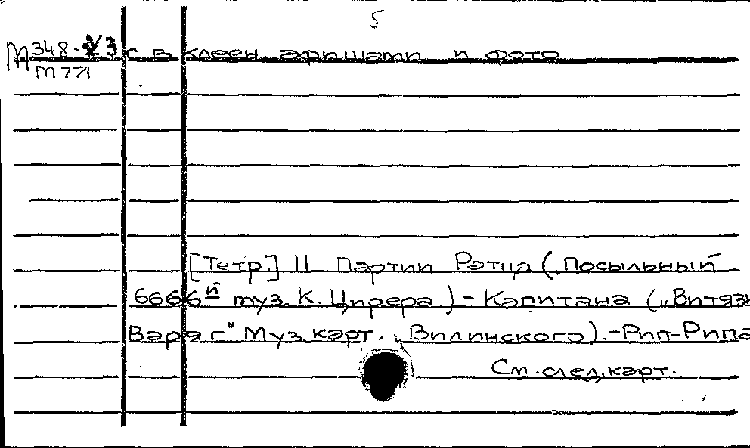 5
М 348-2/3 с в клеен афишами и фото
М 771
[Тетр.] II Партии Рэтца (Посыльный
6666й муз. К. Цирера.) - Капитана („Витязь
Варяг" Муз. карт. Вилинского). - Рип-Рипа
См. след. карт.